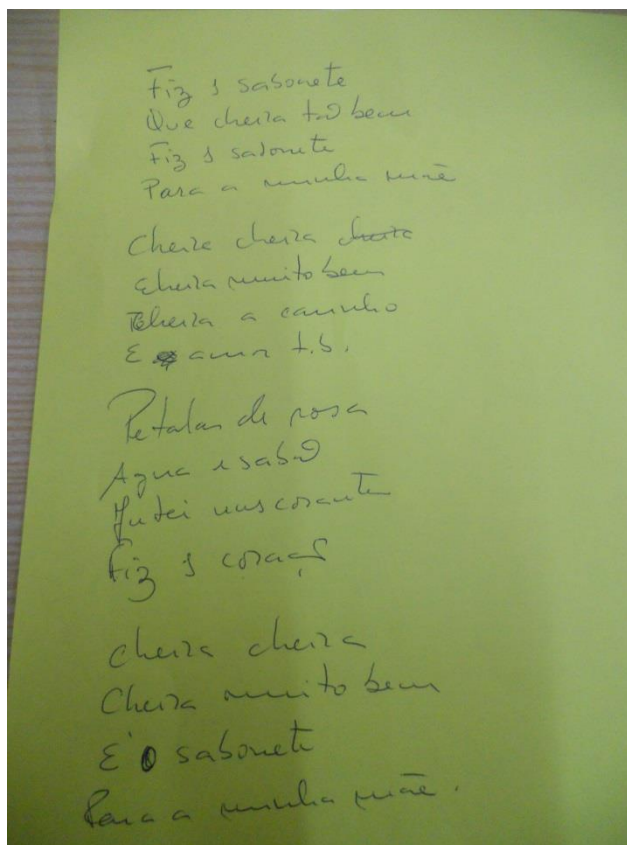 Fiz 1 sabonete
Que cheira tão bem
Fiz 1 sabonete
Para a minha mãe
Cheira cheira cheira
Cheira muito bem
Cheira a carinho
E amor t.b.
Petalas de rosa
Agua e sabão
Juntei uns corante
Fiz 1 coraçã
cheira cheira
Cheira muito bem
É o sabonete
Para a minha mãe.